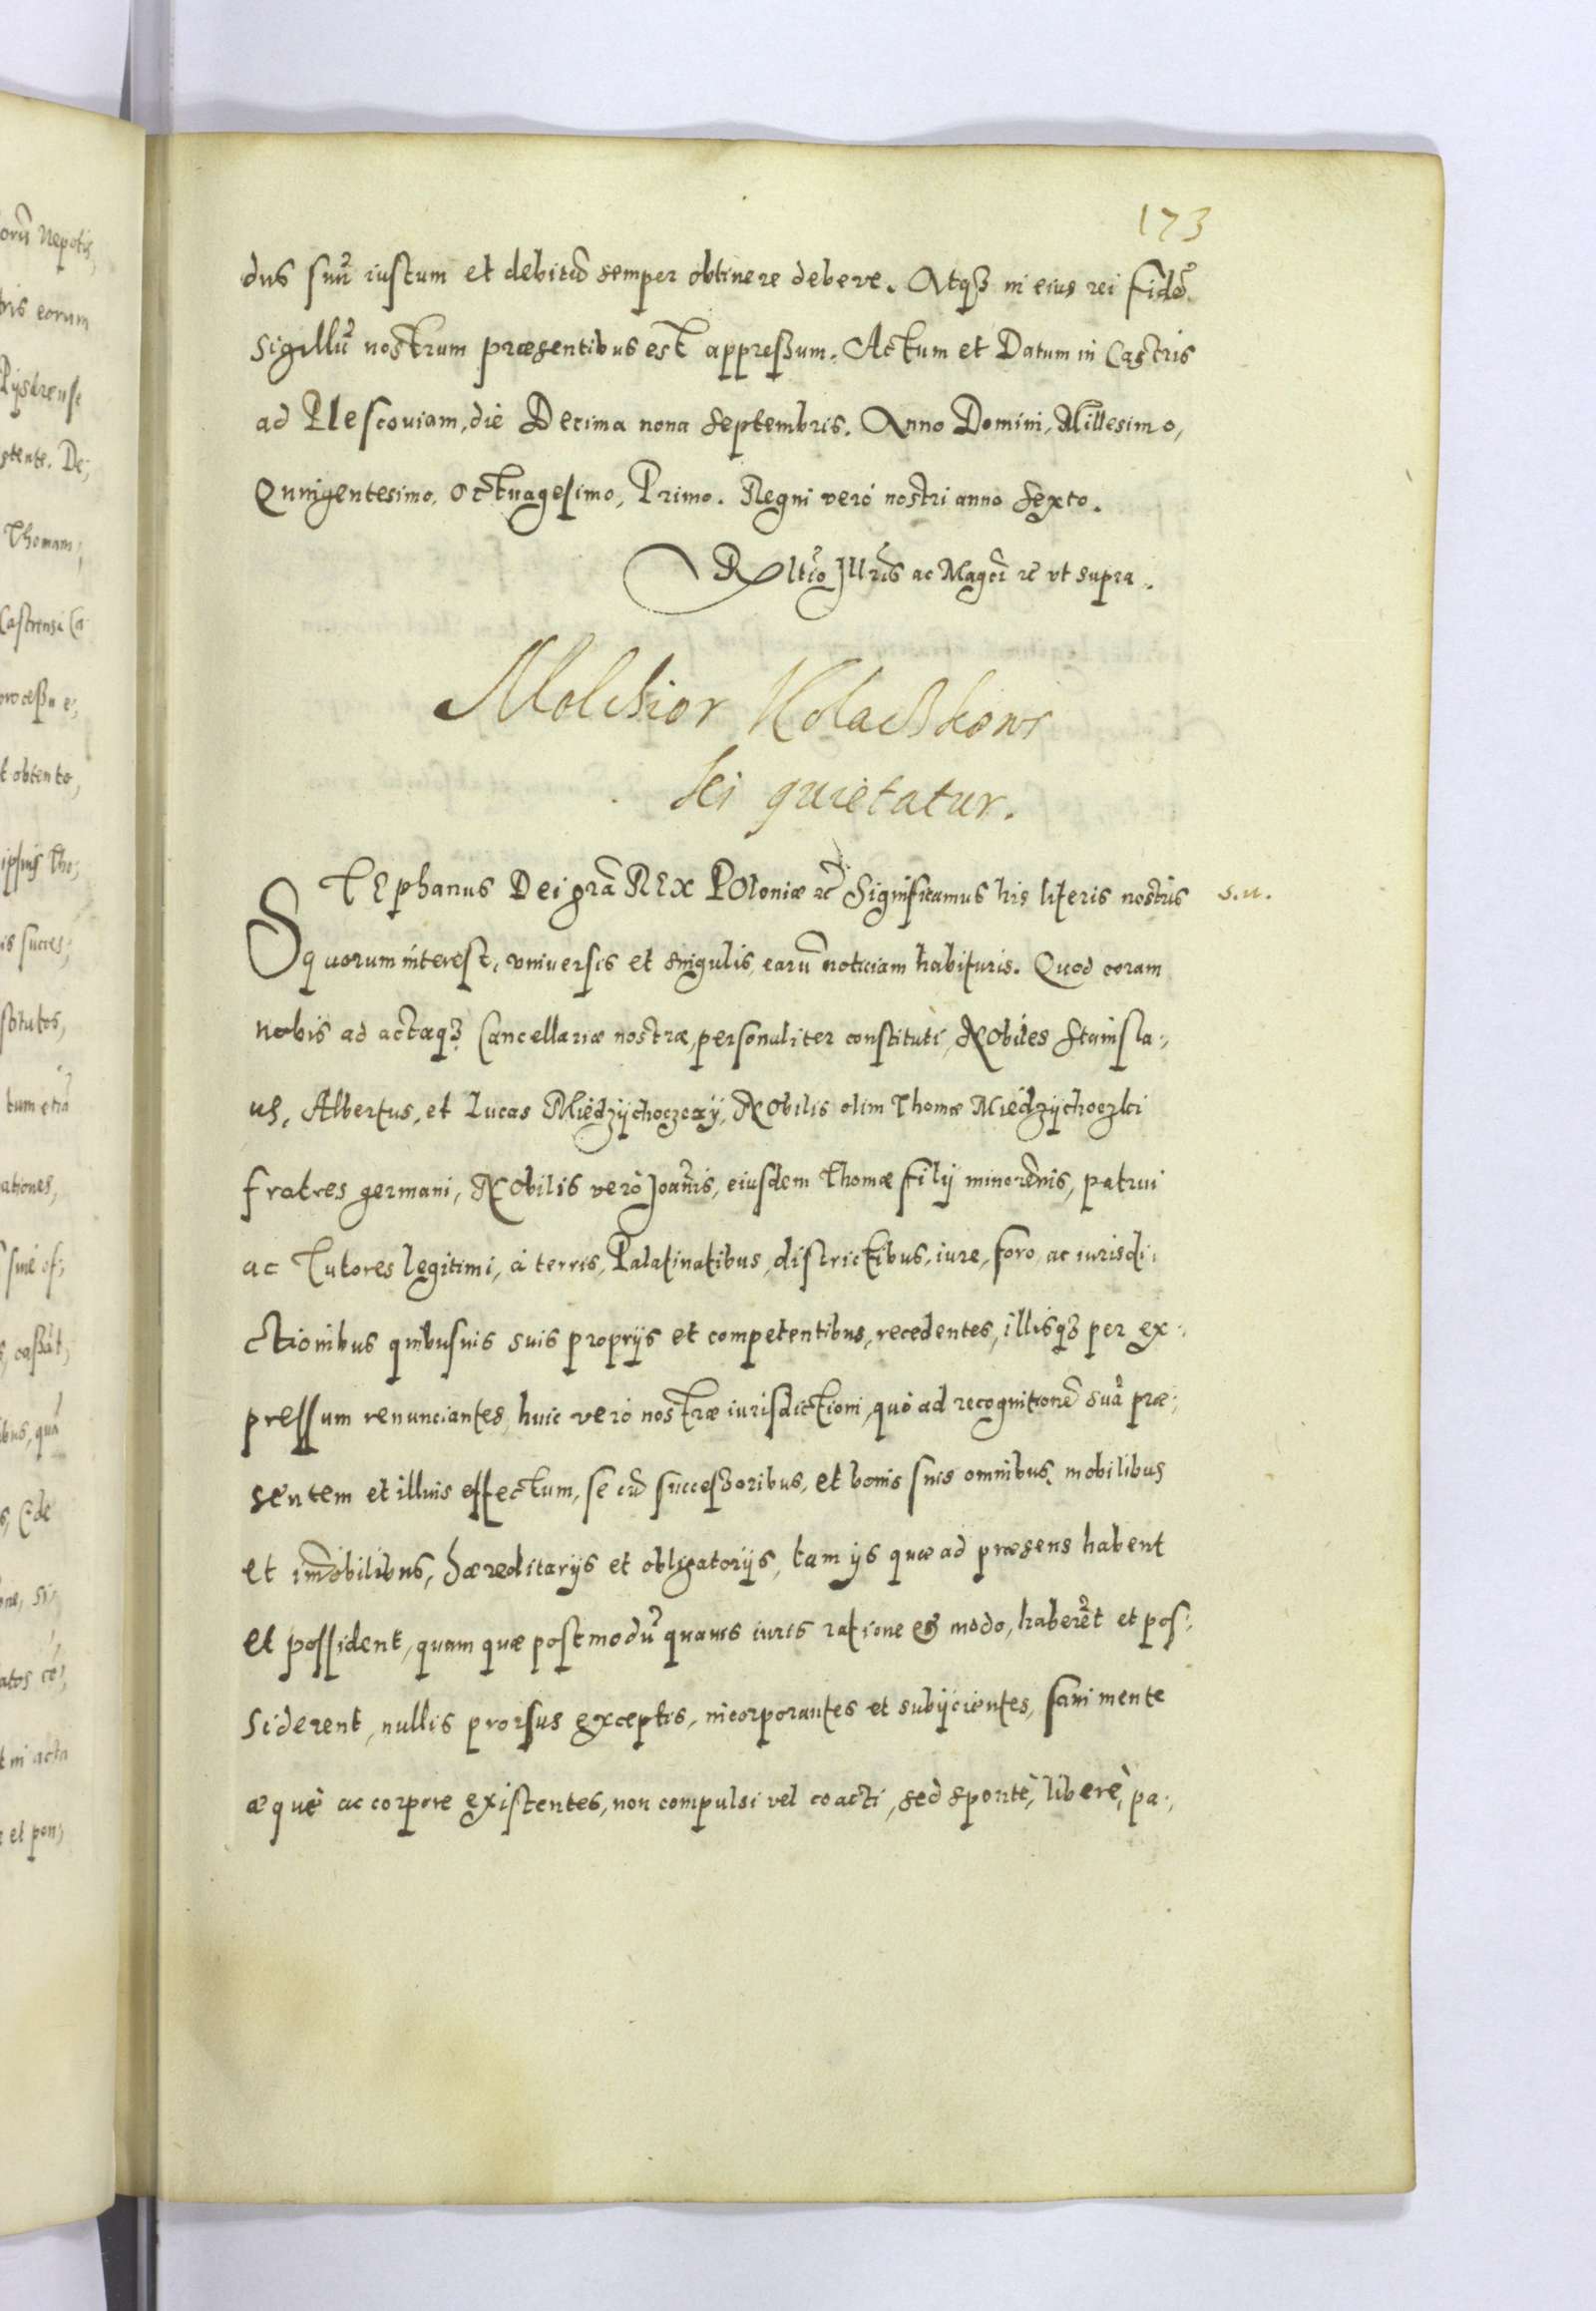 173
dus suũ iustum et debitũ semper obtinere debere. Atqȝ in eius rei fidẽ
Sigillũ nostrum præsentibus est appreßum. Actum et Datum in Castris
ad Plescouiam, die Decima nona Septembris. Anno Domini, Millesimo,
Quingentesimo, Octuagesimo, Primo. Regni verò nostri anno Sexto.
Rltio Jllris ac Magci ꝛc vt supra.
Melchior Kolaczkows
ki quietatur.
STEphanus Dei grã REX POloniæ ꝛc Significamus his literis nostris
s. u.
quorum interest, vniuersis et singulis, earũ noticiam habituris. Quod coram
nobis ad actaqȝ Cancellariæ nostræ, personaliter constituti, NObiles Stanisla:,
us, Albertus, et Lucas Miedzÿchoczczÿ, NObilis olim Thomæ Miedzÿchoczki
fratres germani, NObilis verò Joañis, eiusdem Thomæ filij minorẽnis, patrui
ac Tutores legitimi, à terris, Palatinatibus, districtibus, iure, foro, ac iurisdi:
ctionibus quibusuis suis proprijs et competentibus, recedentes, illisqȝ per ex:
pressum renunciantes, huic verò nostræ iurisdictioni, quò ad recognitionẽ suã præ:,
sentem et illius effectum, se cũ succeßoribus, et bonis suis omnibus, mobilibus
et im̃obilibus, hæreditarijs et obligatorijs, tam ijs quæ ad præsens habent
et possident, quam quæ postmodũ quauis iuris ratione et modo, haberẽt et pos:,
siderent, nullis prorsus exceptis, incorporantes et subijcientes, sani mente
æquè ac corpore existentes, non compulsi vel coacti, sed spontè, liberè, pa:,
orũ Nepotis,
tris eorum
Thomam,
Castrensi Ca
t obtento,
ipsius Tho:,
is succes:,
tum etiã
ationes,
t in acta